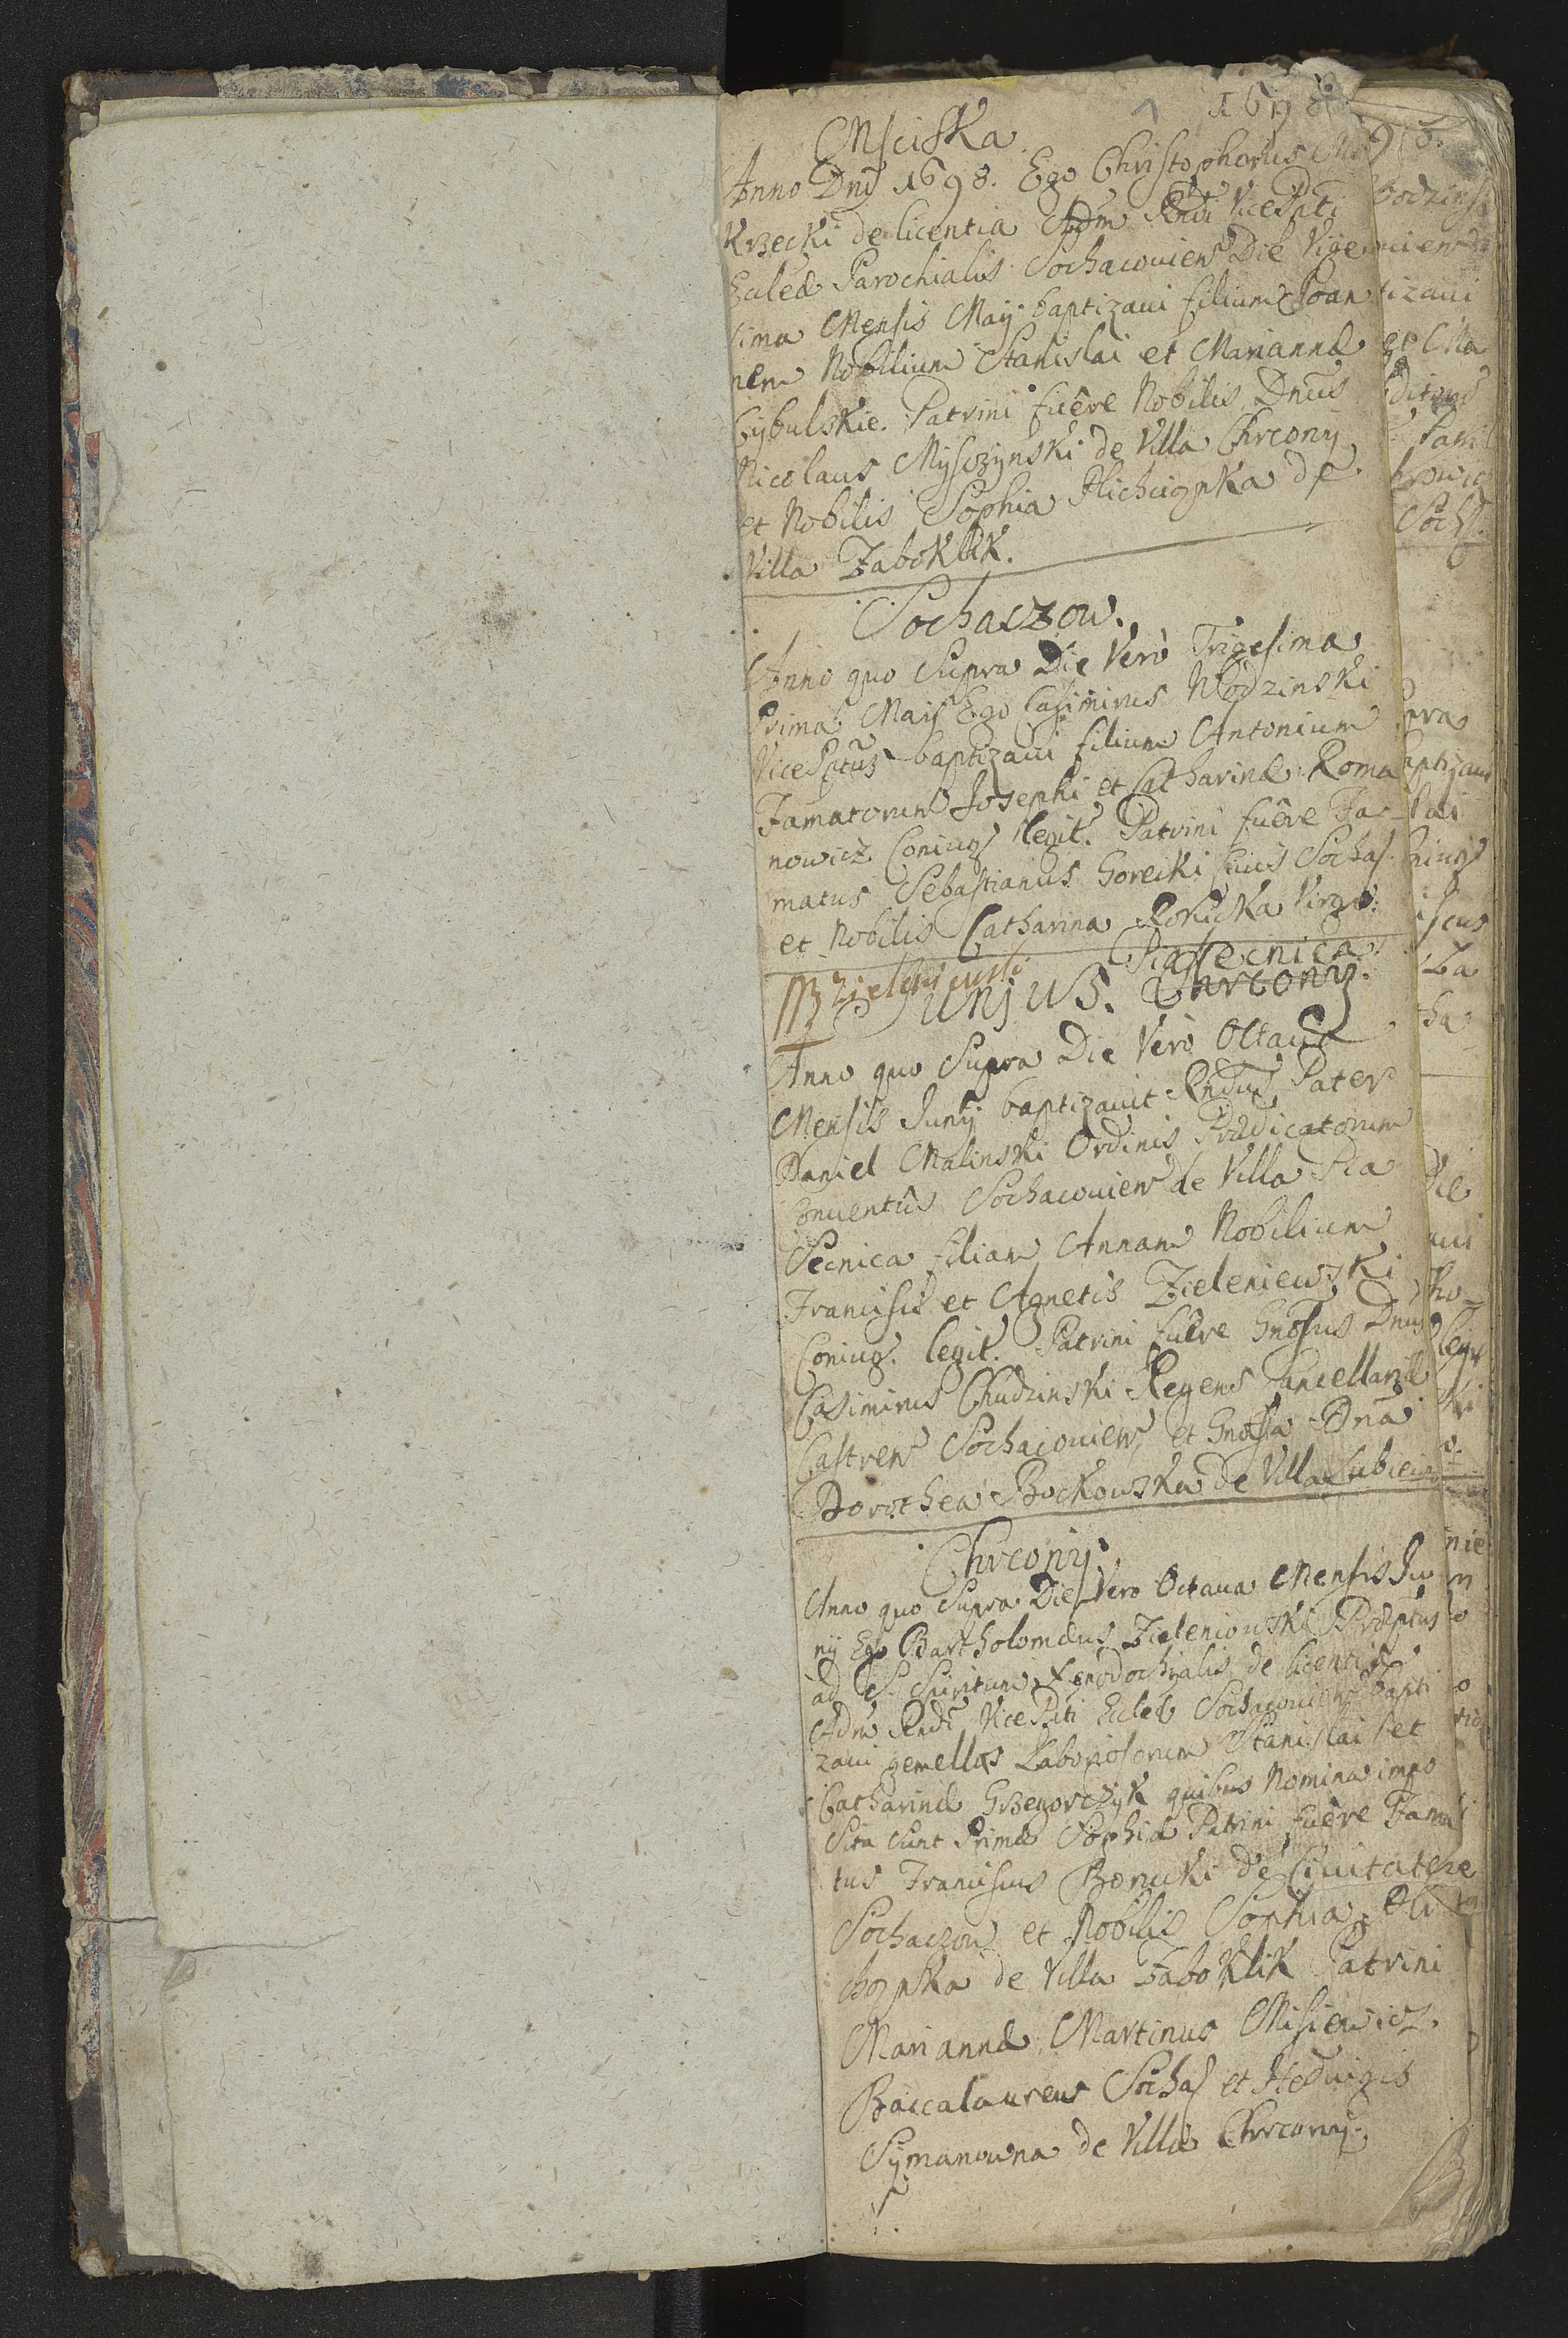 1698
Msciska
Anno Dnj 1698. Ego Christophorus Mo
Krzecki de licentia Adm Rndi VicePpti
Eccleæ Parochialis Sochacouien Die Vige
sima Mensis Maij baptizaui filium Joan
nem Nobilium Stanislai et Mariannæ
Cybulskie. Patrini fuêre Nobilis Dnus
Nicolaus Mysczynski de Villa Chrcony
et Nobilis Sophia Plichcionka de
Villa Zaboklik.
Sochaczow.
Anno quo Supra Die Verò Trigesima
Prima Maij Ego Casimirus Modzinski
VicePptus baptizaui filium Antonium
Famatorum Josephi et Catharinæ Roma
nowicz Coniug legit. Patrini fuêre Fa-
matus Sebastianus Gorecki Ciuis Sochaꝭ
et Nobilis Catharina Rokicka Virgo.
Piasecnica
Junjus. Chrcony.
Anno quo Supra Die Verò Octaua
Mensis Junij baptizauit Rndus Pater
Daniel Malinski Ordinis Prædicatorum
Conuentûs Sochacouien de Villa Pia
Secnica filiam Annam Nobilium
Francisci et Agnetis Zieleniewski
Coniug. legit. Patrini fuêre Gnosus Dnus
Casimirus Chudzinski Regens Cancellariæ
Castren Sochacouien et Gnosa Dna
Dorothea Bockowska de Villa Lubie
Chrcony
Anno quo Supra Die Vero Octaua Mensis Ju
nij Ego Bartholomæus Zieleniouski Præptus
ad S. Spiritum Xenodochialis de licentia
Adm Rndi VicePpti Eccleæ Sochacouien bapti
zaui gemellas Laboriosorum Stanislai et
Catharinæ Grzegorczyk quibus Nomina impo
Sita Sunt Primæ Sophiæ Patrini fuêre Fama
tus Franciscus Borucki de Ciuitate
Sochaczou et Nobilis Sophia Pli
chczonka de Villa Zaboklik Patrini
Mariannæ Martinus Misiewicz.
Baccalaureus Sochaꝭ et Heduigis
Symanowna de Villa Chrcony.